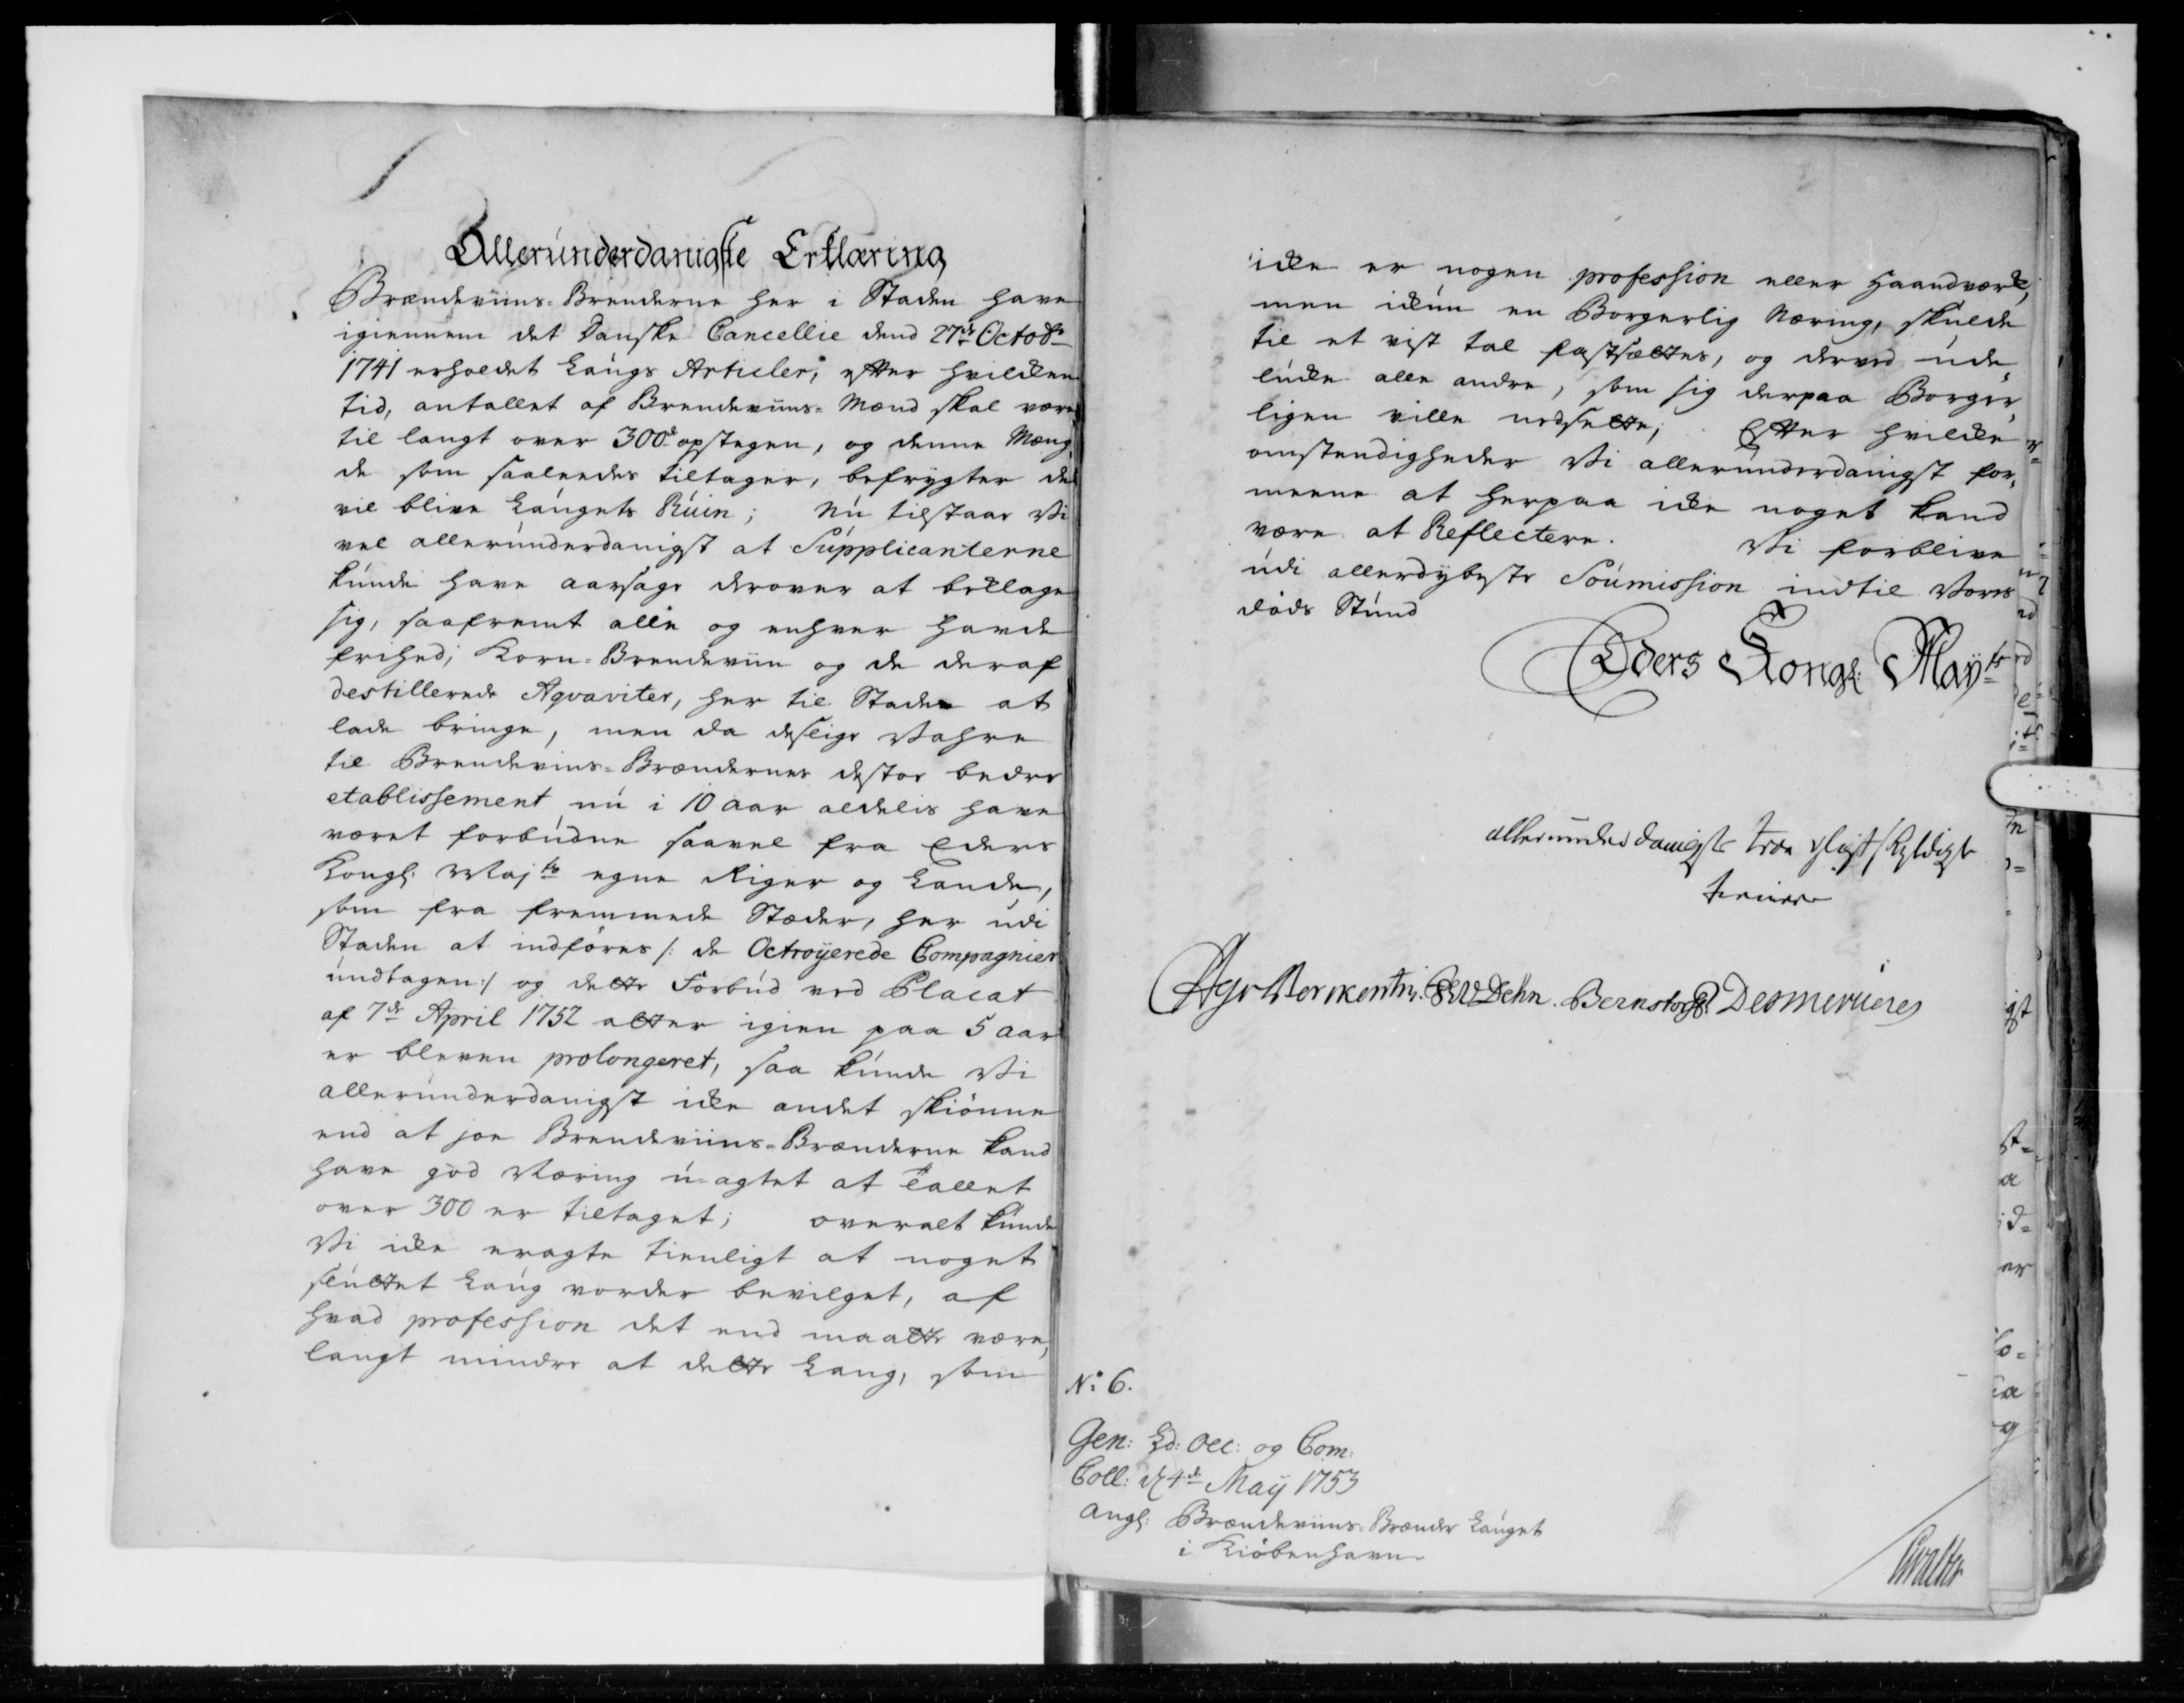 Allerúnderdanigste Erklæring
Brændeviins-Brenderne her i Staden have
igiennem det Danske Cancellie dend 27de Octobr
1741 erholdet Laugs Articler, efter hvilken
tid, antallet af Brendeviins-Mænd skal være
til langt over 300de opstegen, og denne Mæng,
de som saaleedes tiltager, befrygter de
vil blive Laúgets Rúin; Nú tilstaar Vi
vel allerúnderdanigst at Súpplicanterne
kúnde have aarsage derover at beklage
sig, saafremt alle og enhver havde
frihed, Korn-Brendeviin og de deraf
destillerede Aqvaviter, her til Staden at
lade bringe, men da deslige Vahre
til Brendevins-Brændernes destoe bedre
etablissement nú i 10 aar aldelis have
været forbúdne saavel fra Eders
Kongl: Majts egne Riger og Lande,
som fra fremmede Stæder, her údi
Staden at indføres /: de Octroyerede Compagnier
úndtagen :/ og dette Forbúd ved Placat
af 7de April 1752 atter igien paa 5 aar
er bleven prolongeret, saa kúnde Vi
allerúnderdanigst icke andet skiønne
end at joe Brendeviins-Brænderne kand
have god Næring ú-agtet at Tallet
over 300 er tiltaget; overalt kúnde
Vi icke eragte tienligt at noget
slúttet Laúg vorder bevilget, af
hvad profession det end maatte være,
langt mindre at dette Laug, som
icke er nogen profession eller Haandværk,
men ickún en Borgerlig Næring, skulde
til et vist tal fastsættes, og derved úde,
lúcke alle andre, som sig derpaa Borger,
ligen ville nedsette; Efter hvilcke
omstendigheder Vi allerúnderdanigst for,
meene at herpaa icke noget kand
være at Reflectere. Vi forblive
údi allerdybeste Soúmission indtil Vores
døds Stúnd
Eders Kongl: Mayts
allerúnderdanigste troe pligtskyldigste
tienere
AgvBerckentin. CAvDehn. Bernstorff. Desmercieres
No: 6.
Gen: Ld: Oec: og Com:
Coll: d. 4de Maij 1753
Angl: Brændeviins-Brænder Lauget
i Kiøbenhavn